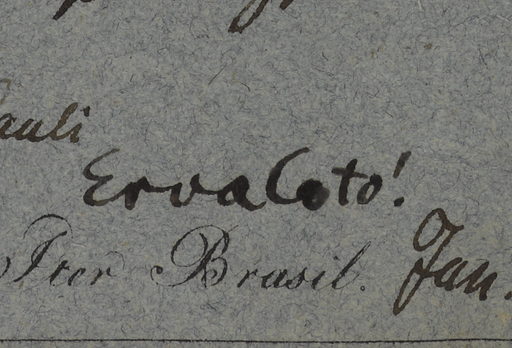 auli
Erva Coto!
Iter Brasil. Jan.